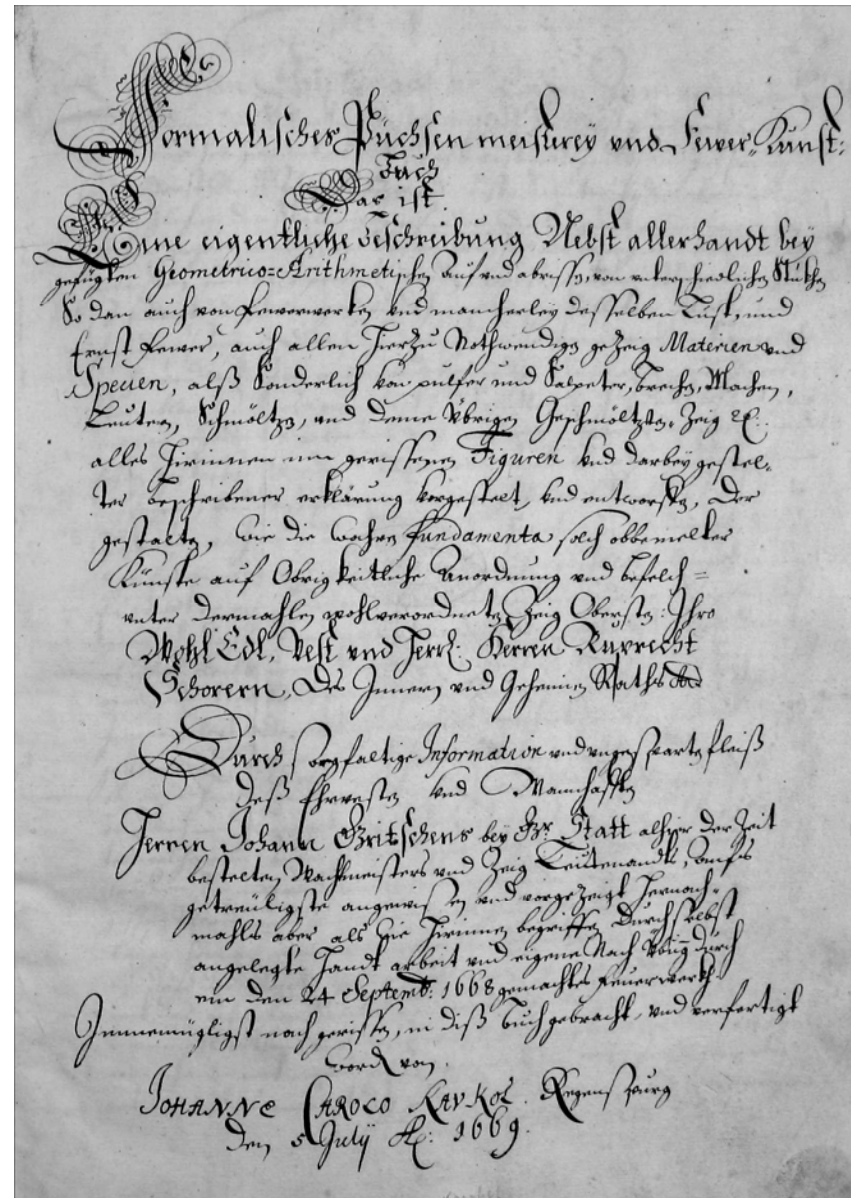 Formalisches Püchsen meisterey vnd Fewer-Kunst:
Buch
Das ist
Eine eigentliche Beschreibung Nebst allerhandt bey
gefügten Geometrico=Arithmetischen auf vnd abrissen, von vnterschiedlichen Stükhen
So dan auch von Fewerwerken vnd mancherley desselben Lust, und
Ernst Fewer, auch allen hierzu Nothwendigen geZeig Materien vnd
Specien, alß Sonderlich von pulfer und Salpeter, brechen, Machen,
Leutern, Schmöltzen, und deme Vbrigen Geschmöltzten Zeig ꝛc:
alles hirinnen inn gerissenen Figuren vnd darbey gestel-
ter beschribener erklärung vorgestelt vnd entworffen, Der
gestalten, wie die wahren fundamenta solch obbemelter
Künste auf Obrigkeitliche Anordnung vnd befelch=
vnter dermahlen wohlverordneten Zeig Obersten: Ihro
Wohl Edl, Vest vnd Herrl: Herren Ruprecht
Schorern, Des Innern vnd Geheimen Raths
Durch sorgfältige Information vnd vngesparten fleiß
deß Ehrvesten vnd Mannhafften
Herren Johann Britschens bey Gr. Statt alhier der Zeit
bestelten Wachtmeisters vnd Zeig Leitenandts, aufs
getreüligste angewissen vnd vorgezeigt hernach-
mahls aber als hie hirinnen begriffen Durch selbst
angelegte Handt arbeit vnd eigene Nach Vbung durch
ein den 24 Septemb: 1668 gemachtes feuerwerkh
Immemügligst nachgerissen, in diß buch gebracht, vnd verfertigt
word von
JOHANNe CAROLO KAVKOL. Regenspurg
den 5 July Aͦ: 1669.